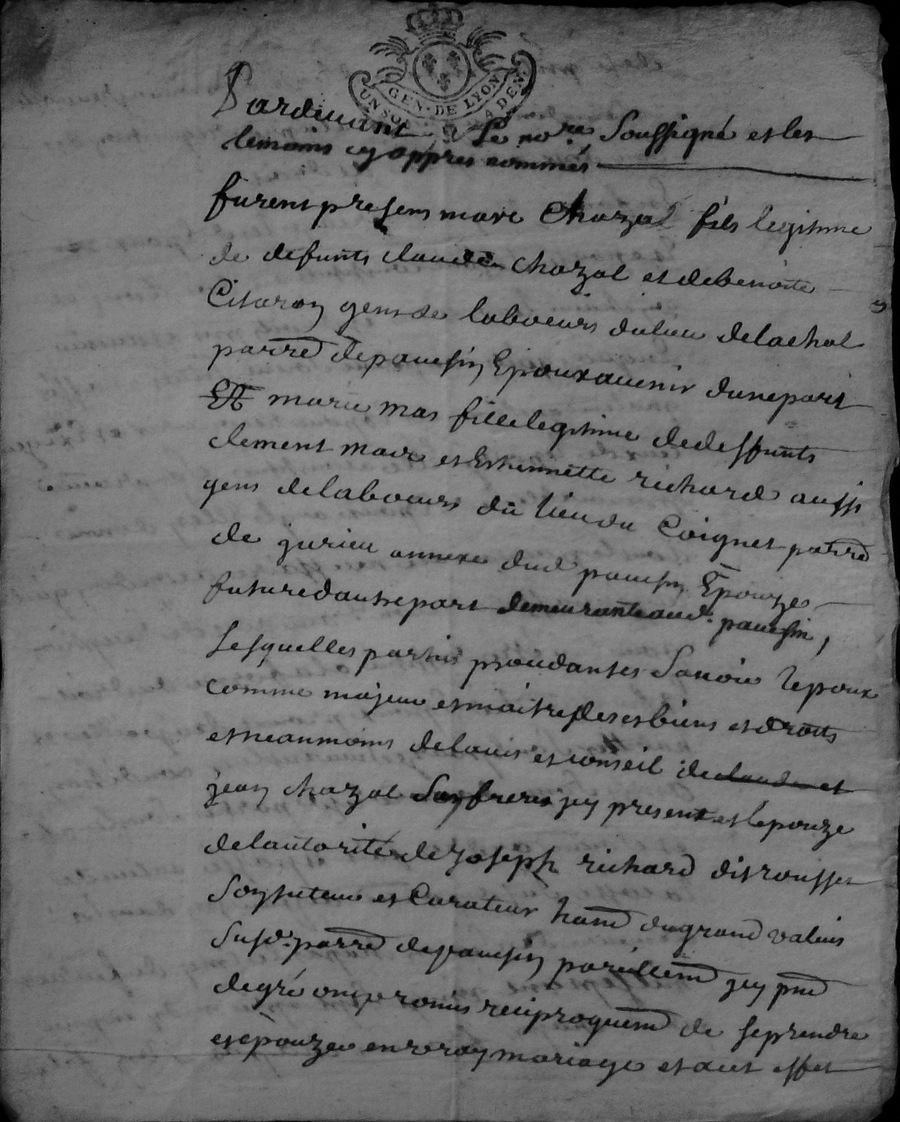 GEN. DE LYON
UN SOL
Pardevant Le no.re Soussigné et les
temoins cy appres nommés
furent presens marc Chazal fils legitime
de defunts claude chazal et de benoite
Citaron gens de labeurs du lieu delachal
parre de pavesin Epoux avenir dune part
Et marie mas fille legitime de deffunts
clement mas et Estiennette richard aussi
gens delabeurs du lieu du Coignet parre
de jurieu annexe dud pavesin Epouze
future dautre part demeurante aud. pavesin,
Lesquelles partis procedantes Savoir lepoux
comme majeur et maitre de ses biens et droits
et neanmoins delavis et conseil de claude et
jean chazal Son frere jcy present et lepouze
delautorité de joseph richard dit rousset
Son tuteur et Curateur hant du grand valuis
Susd. parre de pavesin pareillemt jcy pnt
degré ont promis reciproquemt de se prendre
et epouzer en vray mariage et a cet effet